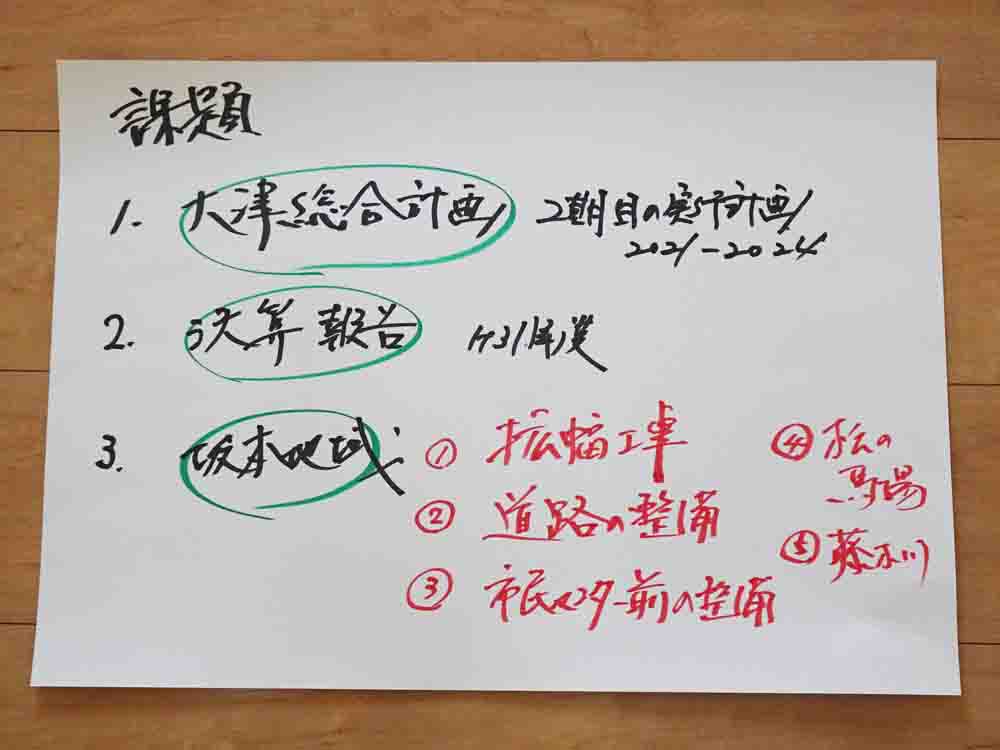 課題
1. 大津総合計画 2期目の実行計画
2021-2024
2. 決算報告 H31年度
3. 坂本地域
① 拡幅工事
② 道路の整備
③ 市民センター前の整備
④ 松の
馬場
⑤ 藤木川